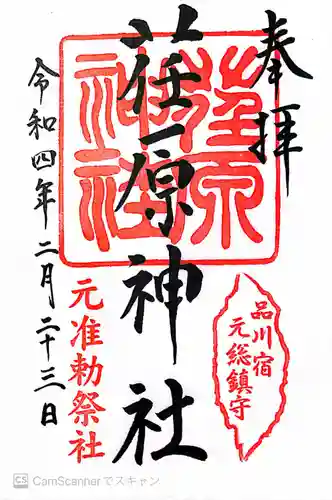 奉拝
荏原神社
荏原神社
品川宿
元総鎮守
元准勅祭社
令和四年二月二十三日
CS CamScannerでスキャン